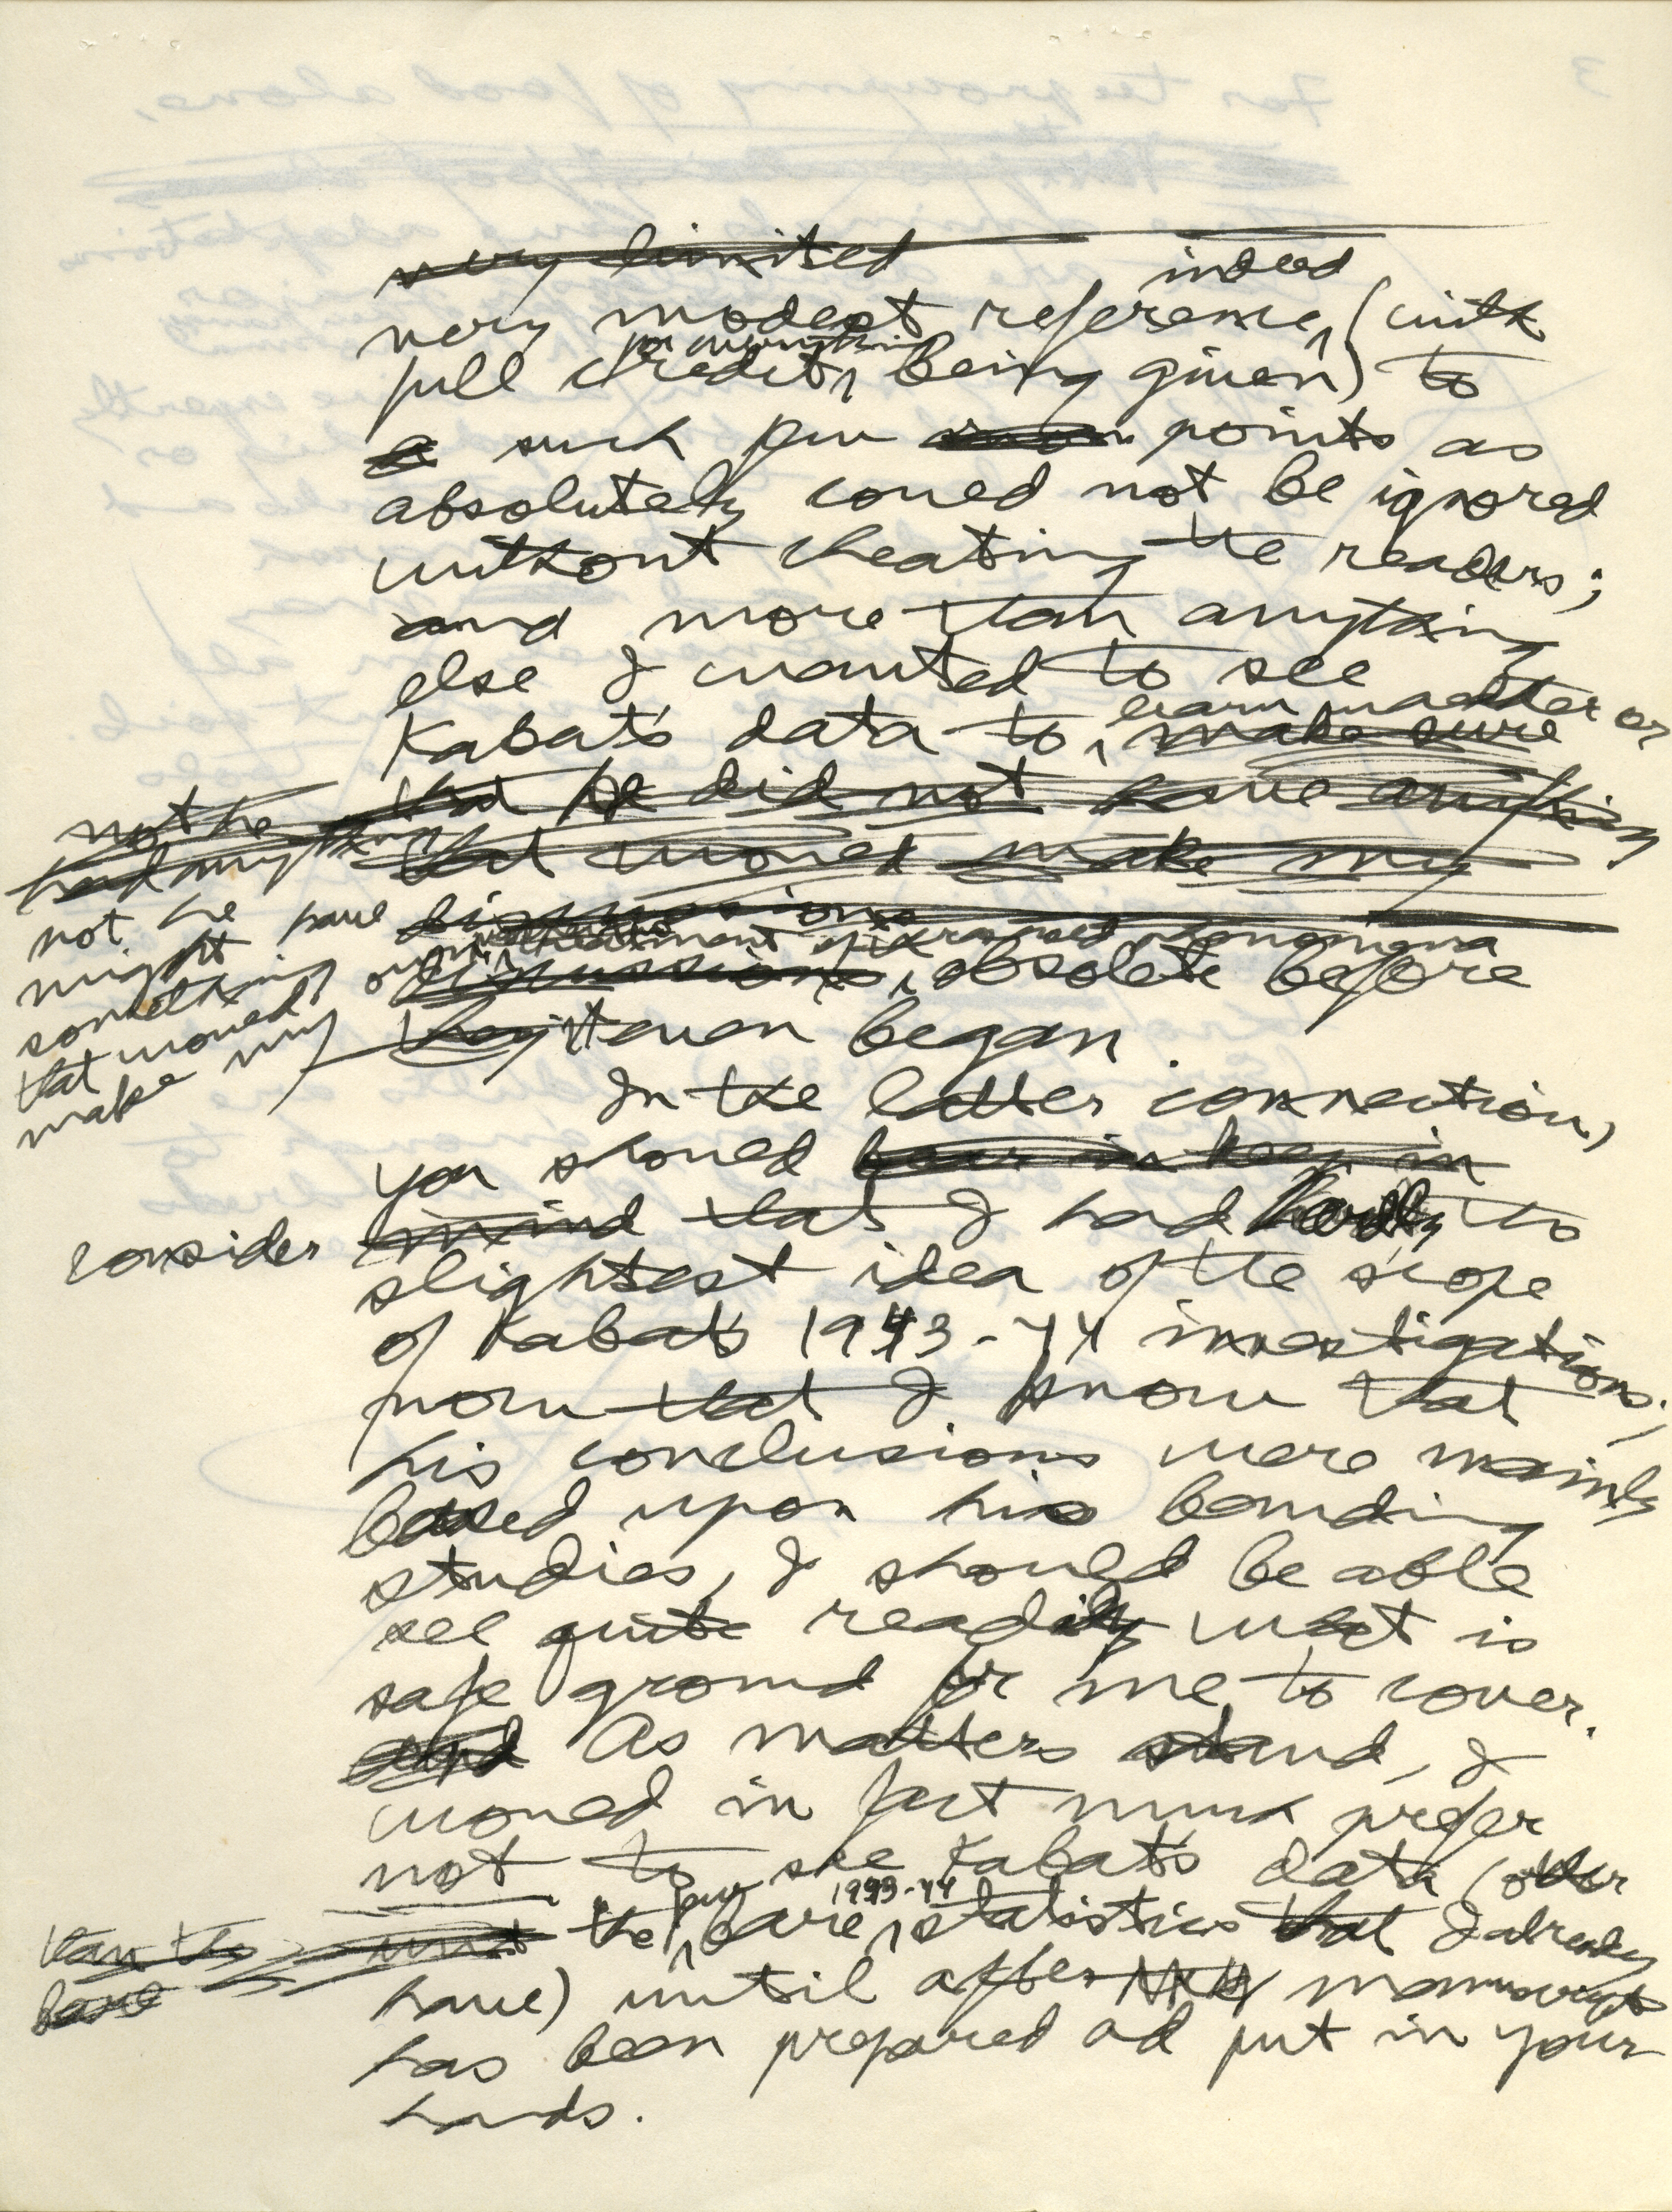 very limited
indeed
very modest reference, (with
for everything
full credit, being given) to
a such few points as
absolutely could not be ignored
without cheating the readers;
and more than anything
else I wanted to see
learn whether or
Kabat's data to, make sure
that he did not have anything
not he
had anything
that would make my
not he have
might
something
that would
make my
discussions
own treatment of ranged phenomena
discussions, obsolete before
they it even began.
In the latter connection,
you should bear in keep in
consider mind that I had hardly to
slightest idea of the scope
of Kabat's 1943-44 investigations;
now that I know that
his conclusions were mainly
based upon his banding
studies, I should be able
see quite readily what is
safe ground for me to cover.
and As matters stand, I
would in fact much prefer
not to see Kabat's data (other
few 1943-44
than the bare
the, bare, statistics that I already
have) until after my manuscript
has been prepared ad put in your
hands.